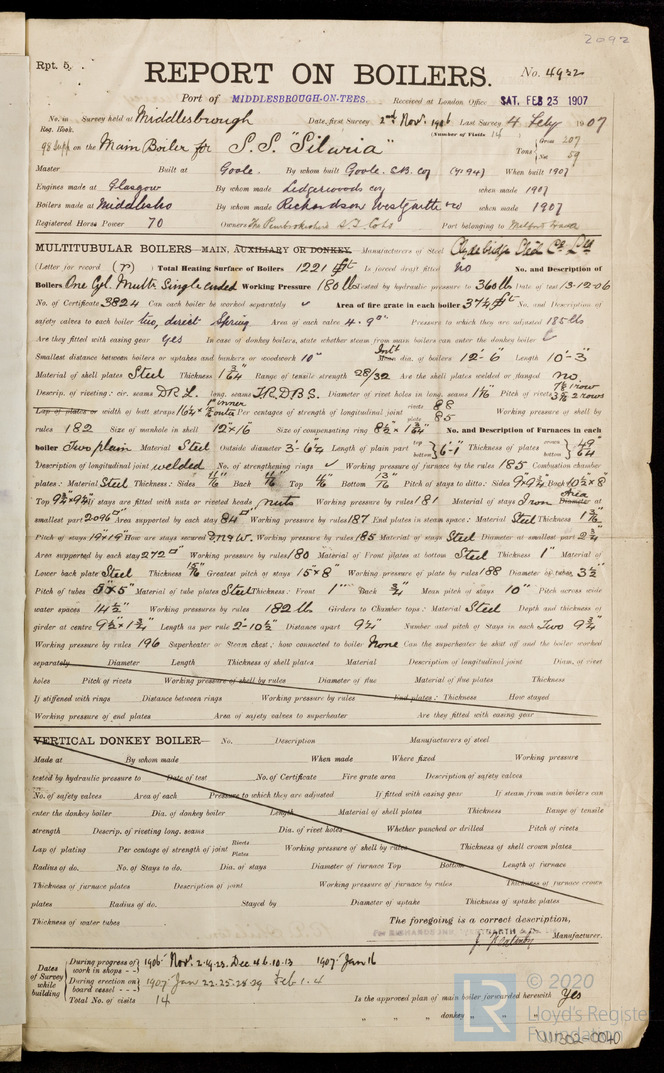 2092
Rpt. 5.
REPORT ON BOILERS.
No. 4932
Port of MIDDLESBROUGH-ON-TEES. Received at London Office SAT. FEB 23 1907
No. in Survey held at Middlesbrough Date, first Survey 2nd Novr. 1906 Last Survey 4 Feby 1907
Reg. Book. (Number of Visits 14
98 Supp on the Main Boiler for S.S. "Siluria" Tons Gross 207 Net 59
Master Built at Goole. By whom built Goole. S.B. Coy (Yd 94) When built 1907
Engines made at Glasgow By whom made Ledgerwoods coy when made 1907
Boilers made at Middlesbro By whom made Richardson Westgarth & Co when made 1907
Registered Horse Power 70 Owners The Pembrokeshire S.T. Co Ld Port belonging to Milford Haven
MULTITUBULAR BOILERS — MAIN, AUXILIARY OR DONKEY. — Manufacturers of Steel Clydebridge Steel Co. Ltd
(Letter for record (r)) Total Heating Surface of Boilers 1221 sq ft Is forced draft fitted no No. and Description of
Boilers One Cyl. Mult. Single ended Working Pressure 180 lbs Tested by hydraulic pressure to 360 lbs Date of test 13-12-06
No. of Certificate 3824 Can each boiler be worked separately Area of fire grate in each boiler 37½ sq ft No. and Description of
safety valves to each boiler two, direct Spring Area of each valve 4.9" Pressure to which they are adjusted 185 lbs
Are they fitted with easing gear yes In case of donkey boilers, state whether steam from main boilers can enter the donkey boiler
Smallest distance between boilers or uptakes and bunkers or woodwork 10" Int Mean dia. of boilers 12'-6" Length 10'-3"
Material of shell plates Steel Thickness 1 3/64 Range of tensile strength 28/32 Are the shell plates welded or flanged no.
Descrip. of riveting: cir. seams DRL. long. seams TRDBS. Diameter of rivet holes in long. seams 1 1/16 Pitch of rivets 7 1/8 1 row 3 9/16 2 rows
Lap of plates or width of butt straps 16¼ x inner outer Per centages of strength of longitudinal joint rivets 88 plate 85 Working pressure of shell by
rules 182 Size of manhole in shell 12"x16 Size of compensating ring 8½ x 1 3/64 No. and Description of Furnaces in each
boiler Two plain Material Steel Outside diameter 3'-6¼ Length of plain part top bottom 6'-1" Thickness of plates crown bottom 49/64
Description of longitudinal joint welded No. of strengthening rings Working pressure of furnace by the rules 185 Combustion chamber
plates: Material Steel Thickness: Sides 11/16 Back 11/16 Top 11/16 Bottom 13/16 Pitch of stays to ditto: Sides 9x9¼ Back 10½x8"
Top 9¾x9¼ If stays are fitted with nuts or riveted heads nuts Working pressure by rules 181 Material of stays Iron Area Diameter at
smallest part 2.096 Area supported by each stay 84 Working pressure by rules 187 End plates in steam space: Material Steel Thickness 1 3/16
Pitch of stays 19x19 How are stays secured DN&W. Working pressure by rules 185 Material of stays Steel Diameter at smallest part 2¾
Area supported by each stay 272 Working pressure by rules 180 Material of Front plates at bottom Steel Thickness 1" Material of
Lower back plate Steel Thickness 15/16 Greatest pitch of stays 15x8" Working pressure of plate by rules 188 Diameter of tubes 3½
Pitch of tubes 5x5" Material of tube plates Steel Thickness: Front 1" Back ¾ Mean pitch of stays 10" Pitch across wide
water spaces 14½" Working pressures by rules 182 lb Girders to Chamber tops: Material Steel Depth and thickness of
girder at centre 9½"x1¾ Length as per rule 2'-10½ Distance apart 9¼ Number and pitch of Stays in each Two 9¾"
Working pressure by rules 196 Superheater or Steam chest; how connected to boiler None Can the superheater be shut off and the boiler worked
separately Diameter Length Thickness of shell plates Material Description of longitudinal joint Diam. of rivet
holes Pitch of rivets Working pressure of shell by rules Diameter of flue Material of flue plates Thickness
If stiffened with rings Distance between rings Working pressure by rules End plates: Thickness How stayed
Working pressure of end plates Area of safety valves to superheater Are they fitted with easing gear
VERTICAL DONKEY BOILER— No. Description Manufacturers of steel
Made at By whom made When made Where fixed Working pressure
tested by hydraulic pressure to Date of test No. of Certificate Fire grate area Description of safety valves
No. of safety valves Area of each Pressure to which they are adjusted If fitted with easing gear If steam from main boilers can
enter the donkey boiler Dia. of donkey boiler Length Material of shell plates Thickness Range of tensile
strength Descrip. of riveting long. seams Dia. of rivet holes Whether punched or drilled Pitch of rivets
Lap of plating Per centage of strength of joint Rivets Plates Working pressure of shell by rules Thickness of shell crown plates
Radius of do. No. of Stays to do. Dia. of stays Diameter of furnace Top Bottom Length of furnace
Thickness of furnace plates Description of joint Working pressure of furnace by rules Thickness of furnace crown
plates Radius of do. Stayed by Diameter of uptake Thickness of uptake plates
Thickness of water tubes The foregoing is a correct description,
Manufacturer.
Dates of Survey while building During progress of work in shops - - 1906 Nov. 2.19.23. Dec 4.6.10.13 1907 Jan 16
During erection on board vessel - - - 1907 Jan 22.25.28.29 Feb 1.4
Total No. of visits 14 Is the approved plan of main boiler forwarded herewith Yes
" " " donkey " " "
© 2020
LR Lloyd's Register Foundation
W1302-0040